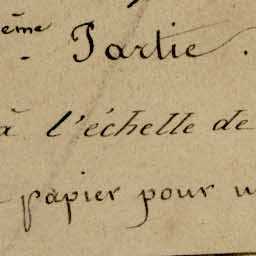 ème
- Partie.
à l'échelle de
papier pour